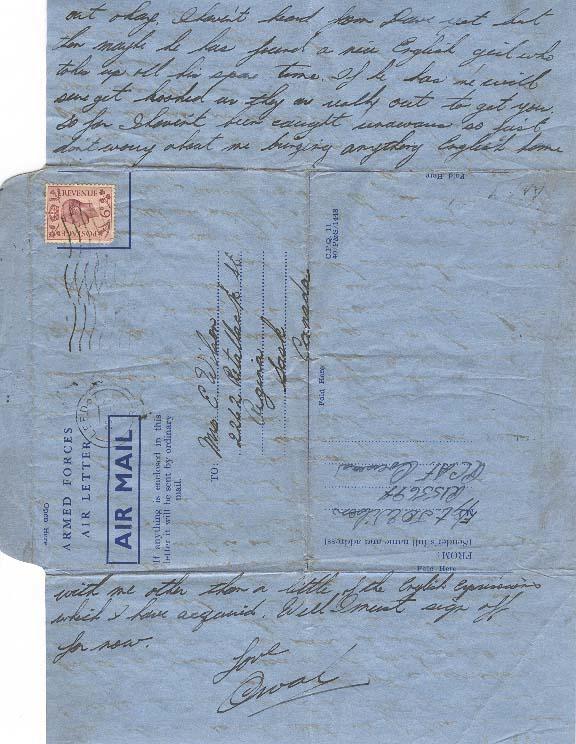 out okay, I haven't heard from Dave yet but
then maybe he has found a nice English girl who
takes up all his spare time. If he has he will
sure get hooked as they are really out to get you.
So far I haven't been caught unawares so just
don't worry about me bringing anything English home
REVENUE
POSTAGE
6D
Open Here
ARMED FORCES
AIR LETTER
AIR MAIL
If anything is enclosed in this
letter it will be sent by ordinary
mail.
TO:
Mrs. E. Wilson
2242 St.
Regina
Sask
Canada
Fold Here
C.P.Q. 11
Fold Here
Fold Here
FROM:
[Sender's full name and address]
Wilson
R153697
RCAF Overseas
with me other than a little of the English expressions
which I have acquired. Well I must sign off
for now.
Love
Orval